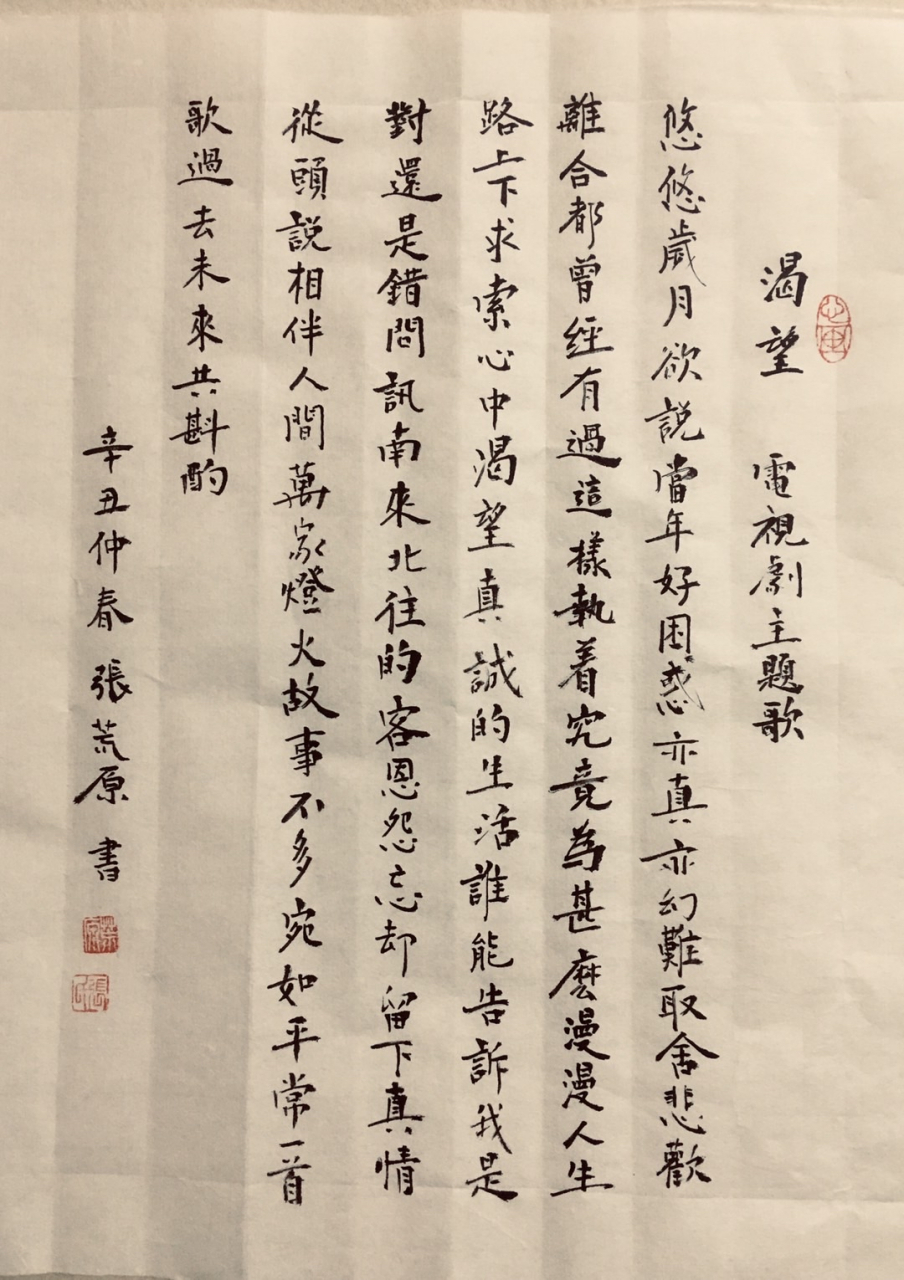 渴望 電視劇主題歌
悠悠歲月欲説當年好困惑亦真亦幻難取舍悲歡
離合都曾經有過這樣執着究竟為甚麽漫漫人生
路上下求索心中渴望真誠的生活誰能告訴我是
對還是錯問訊南來北往的客恩怨忘却留下真情
從頭説相伴人間萬家燈火故事不多宛如平常一首
歌過去未來共斟酌
辛丑仲春 張荒原 書